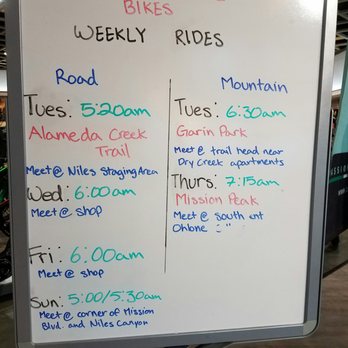 BIKES
WEEKLY RIDES
Road
Tues: 5:20am
Alameda Creek
Trail
Meet@ Niles Staging Area
Wed: 6:00am
Meet@ shop
Fri: 6:00am
Meet@ shop
Sun: 5:00/5:30am
Meet@ corner of Mission
Blvd. and Niles Canyon
Mountain
Tues: 6:30am
Garin Park
Meet@ trail head near
Dry Creek apartments
Thurs: 7:15am
Mission Peak
Meet@ south ent
Ohlone